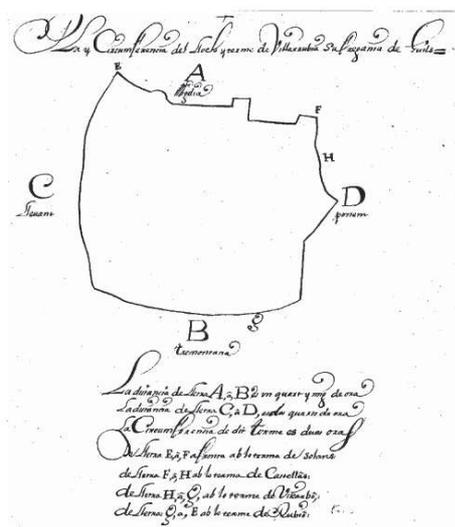 Circumferencia del lloch y terme de Villarrubia
E
A
F
H
C
llevant
D
ponent
B
tremontana
G
La distancia de lletra A, a B es un quart y mig de ora
La distancia de lletra C, a D, quarts de ora
La Circumferencia de dit terme es duas oras
De lletra E, a F afronta ab lo terme de Solans
de lletra F, a H ab lo terme de Castellas
de lletra H, a G, ab lo terme de
de lletra G, a E ab lo terme de